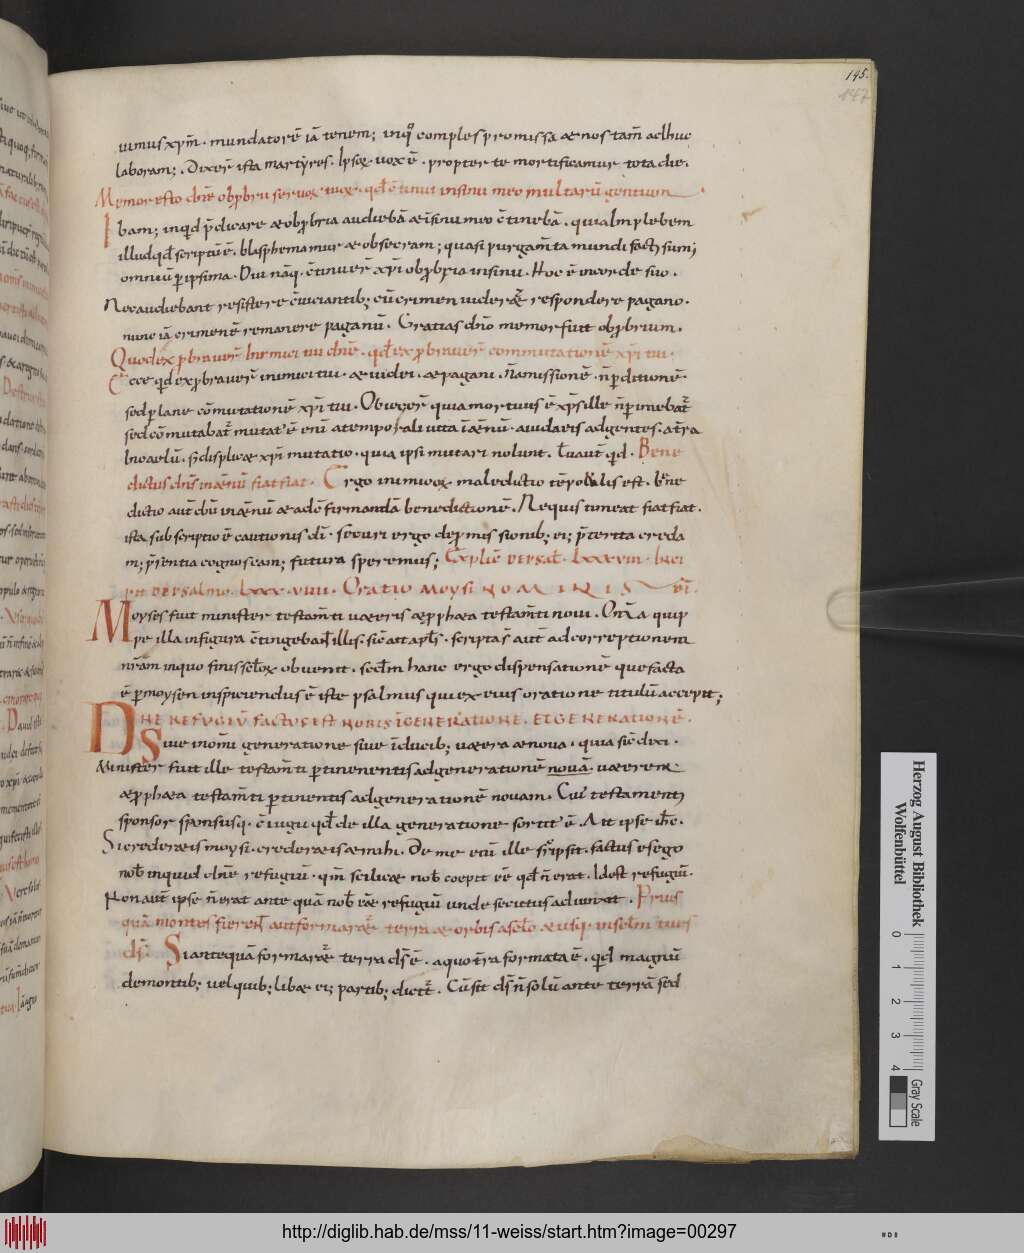 195.
147
uimus xp̄m. mundatorē iā tenem; inq̊ comples promissa & nos tam̄ adhuc
laboram; . Dixer̄ ista martyres. Ipsoꝝ uox ē. propter te mortificamur tota die.
Memor esto dn̄e obꝓbrii seruoꝝ tuoꝝ. qđ c̄tinui in sinu meo multarū gentium
Ibam; inquid p̄dicare & obꝓbria audiebā & in sinu meo c̄tinebā. quia Implebem
illud qđ scriptū ē. blasphemamur & obsecram; quasi purgam̄ta mundi facti sum;
omniū ꝑipsima. Diu nāq. c̄tinuer̄ xp̄i obꝓbria in sinu. Hoc ē in corde suo.
Nec audebant resistere c̄uiciantib; cū crimen uider&̄ respondere pagano.
nunc iā crimen ē remanere paganū. Gratias dn̄o memor fuit obꝓbrium.
Quod exꝓbrauer̄ Inimici tui dn̄e. qđ exprobrauer̄ commutationē xp̄i tui.
Ecce qđ exꝓbrauer̄ inimici tui. & iudei. & pagani. N̄ amissionē. n̄ ꝑditionē.
sed plane cōmutationē xp̄i tui. Obiecer̄ quia mortuus ē xp̄s ille n̄ ꝑimebat̄
sed cōmutabat̄ mutat' ē eni atemporali uita ī&nū. a iudaeis ad gentes. at̄ra
In caelū. s; displic& xp̄i mutatio. quia ipsi mutari nolunt. t̄uaut̄ qđ. Bene
dictus dn̄s in&nū fiat fiat. Ergo inimicoꝝ maledictio tēporalis est. bn̄e
dictio aut̄ dn̄i in&nū & ad c̄firmandā benedictionē. Ne quis timeat fiat fiat.
ista subscriptio ē cautionis dī. securi ergo de ꝓmissionib; ei; p̄terita creda
m; p̄sentia cognoscam; futura speremus; Explic̄ de psal. lxxxviii. Inci
pit de psalmo. lxxxviiii. Oratio moysi NOMINIS DĪ.
Moyses fuit minister testam̄ti u&eris & ꝓph&a testam̄ti noui. Om̄ia quip
pe illa in figura c̄tingebant̄ illis. sic̄ ait apls̄. scripta s̄ aut̄ ad correptionem
nr̄am in quo finis scl̄oꝝ obuenit. scd̄m hanc ergo dispensationē que facta
ē ꝑ moysen inspiciendus ē iste psalmus qui ex eius oratione titulū accepit;
DNE REFUGIŪ FACTUS EST NOBIS ĪGENERATIONE. ET GENERATIONĒ.
Siue in omī generatione siue ī duab; u&era & noua. quia sic̄ dixi.
Minister fuit ille testam̄ti ꝑtinentis ad generationē nouā. u&erem
& ꝓph&a testam̄ti ꝑtinentis ad generationē nouam. Cui' testamenti
sponsor sponsusq;. c̄iugii qđ de illa generatione sortit' ē. Ait ipse ih̄c.
Si crederetis moysi. crederetis & mihi. De me eni ille sc̄ripsit. factus es ego
nob̄ inquid dn̄e refugiū. qm̄ scilic& nob̄ coepit eē qđ n̄ erat. Id est refugiū.
Non aut̄ ipse n̄ erat ante quā nob̄ eēt refugiū unde secutus adiunxit. Prius
quā montes fierent̄ aut formar&̄ terra & orbis a scl̄o & usq; in scl̄m tu es
dī. Si antequā formar&̄ terra ds̄ ē. a quo t̄ra formata ē. qđ magnū
de montib; uel quib; lib& ei; partib; dict̄. Cū sit ds̄ n̄ solū ante terrā sed
Herzog August Bibliothek
Wolfenbüttel
0 1 2 3 4
Gray Scale
http://diglib.hab.de/mss/11-weiss/start.htm?image=00297